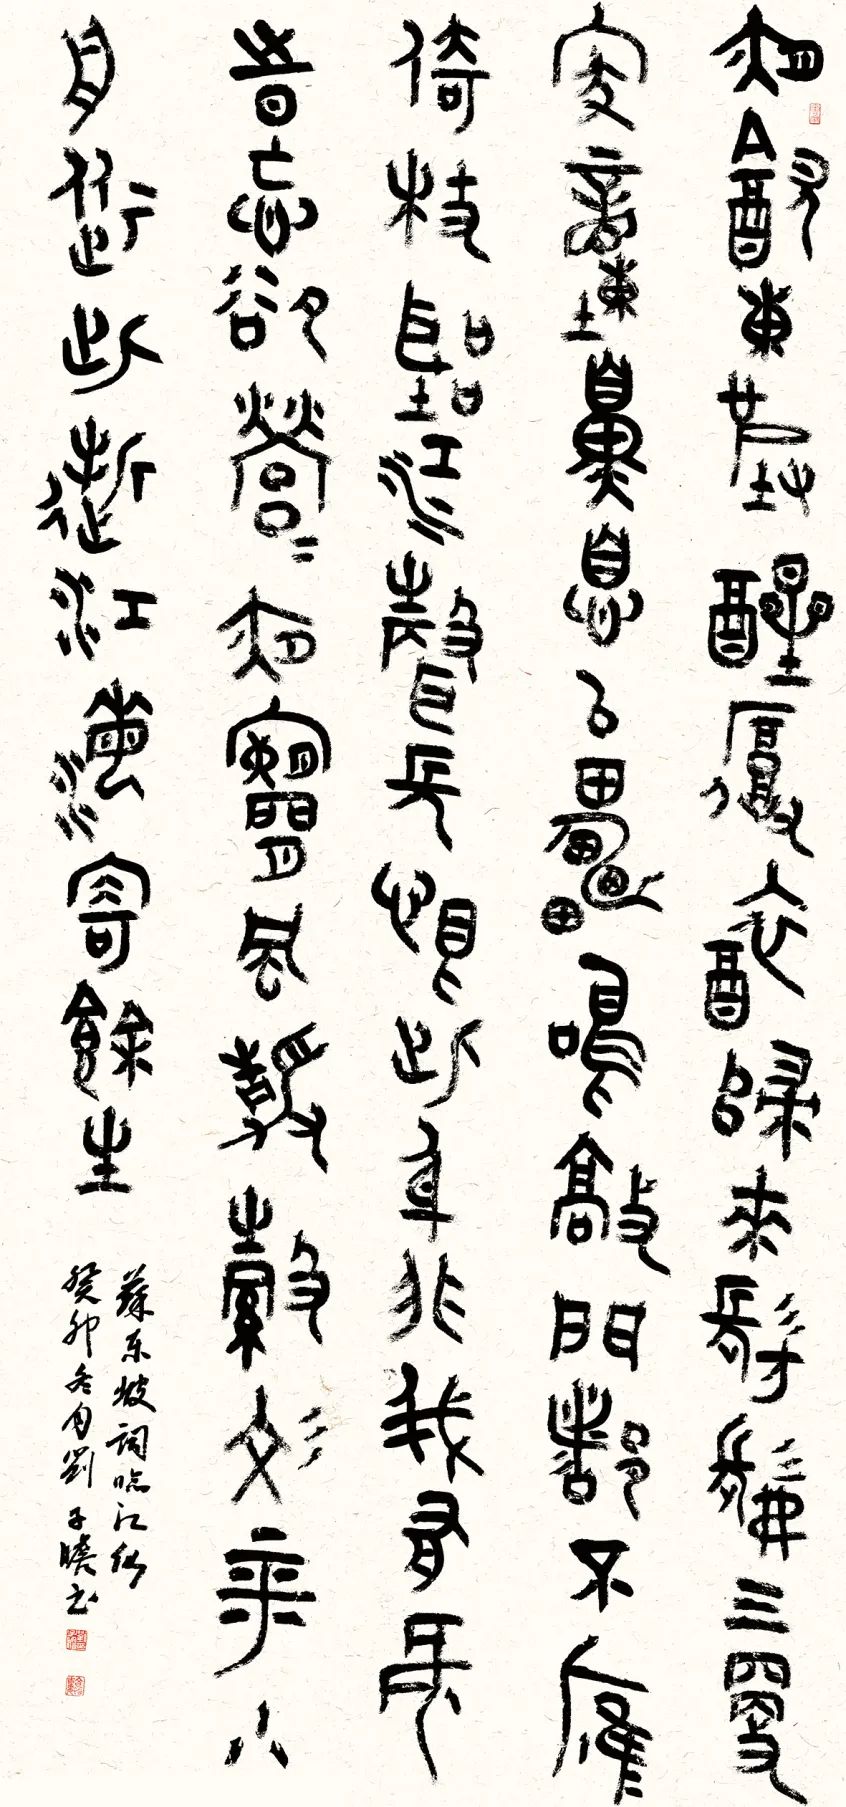 夜飲東坡醒復醉歸來髣髴三更
家童鼻息已雷鳴敲門都不應
倚杖聽江聲長恨此身非我有何
時忘卻營營夜闌風靜縠紋平小
舟從此逝江海寄餘生
蘇東坡詞臨江仙
癸卯冬月劉子書